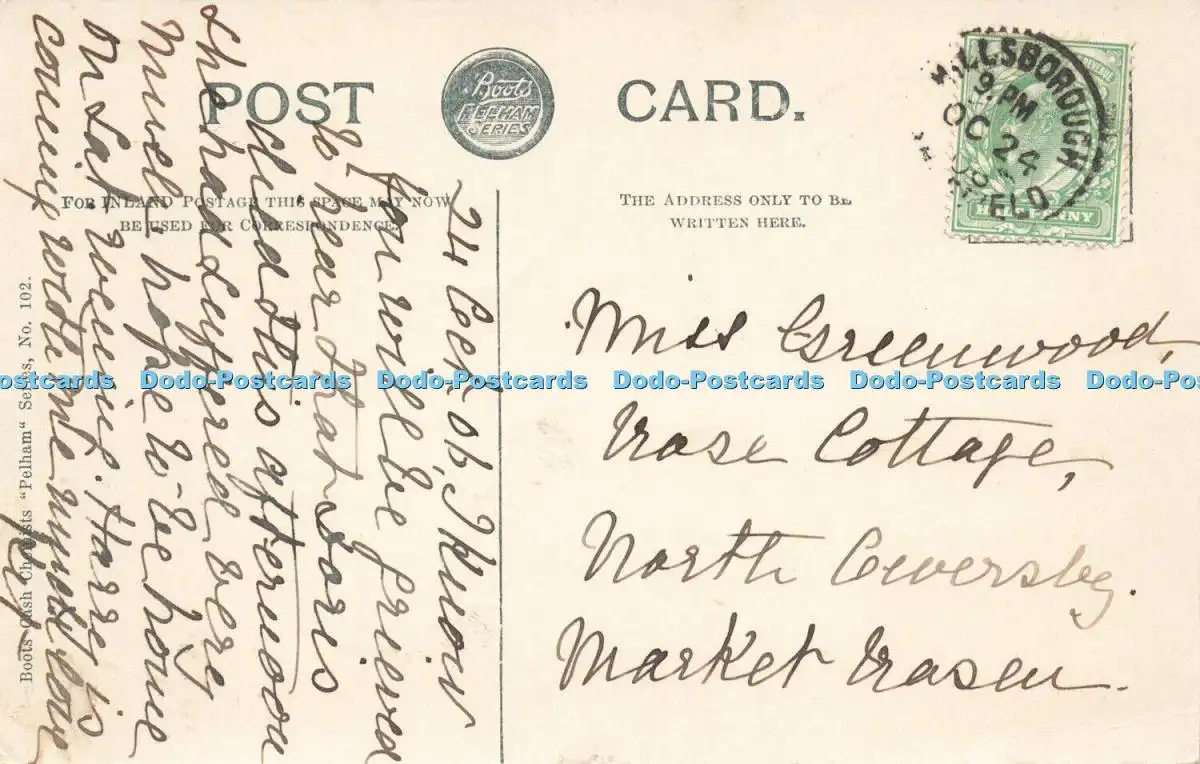 POST CARD.
Boots
PELHAM
SERIES
FOR INLAND POSTAGE THIS SPACE MAY NOW
BE USED FOR CORRESPONDENCE.
THE ADDRESS ONLY TO BE
WRITTEN HERE.
HILLSBOROUGH
9. PM
OC 24
HALFPENNY
24 06. I know
you will be grieved
to hear that Doris
died this afternoon
she had suffered very
much hope to be home
on Sat evening. Harry is
coming with me much love
Miss Greenwood,
Rose Cottage,
North Owersby.
Market Rasen.
Boots Cash Chemists "Pelham" Series, No. 102.
Dodo-Postcards Dodo-Postcards Dodo-Postcards Dodo-Postcards Dodo-Postcards